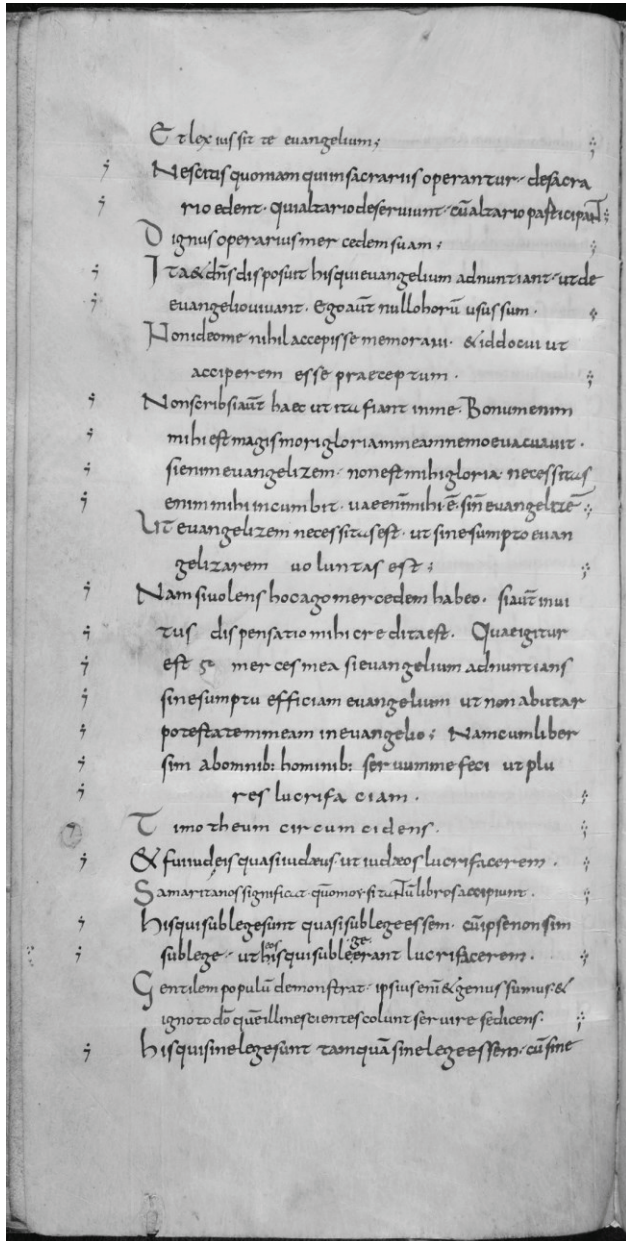 Et lex iussit te evangelium;
Nescitis quoniam qui in sacrariis operantur· de sacra
rio edent· qui altario deserviunt· cū altario participanT;
Dignus operarius mercedem suam;
Ita & dn̄s disposuit his qui evangelium adnuntiant· ut de
evangelio vivant. Ego aūt nullo horū usus sum·
Non ideo me nihil accepisse memoravi· & id docui ut
acciperem esse praeceptum·
Non scribsi aūt haec ut ita fiant in me· Bonum enim
mihi est magis mori gloriam meam nemo evacuavit·
si enim evangelizem· non est mihi gloria· necessitas
enim mihi incumbit· vae enī mihi ē· si n̄ evangelizē·
Ut evangelizem necessitas est· ut sine sumpto evan
gelizarem voluntas est;
Nam si volens hoc ago mercedem habeo· si aūt invi
tus dispensatio mihi credita est. Quae igitur
est merces mea si evangelium adnuntians
sine sumptu efficiam evangelium ut non abutar
potestatem meam in evangelio; Nam cum liber
sim ab omnib: hominib: servum me feci ut plu
res lucrifaciam.
Timotheum circumcidens.
& fui iudeis quasi iudæus· ut iudæos lucrifacerem.
Samaritanos significat libros accipiunt.
his qui sub lege sunt quasi sub lege essem· cū ipse non sim
sub lege· ut eos his qui sub lege erant lucrifacerem.
Gentilem populū demonstrat· ipsius enī & genus sumus· &
ignoto dō quē illi nescientes colunt servire se dicens·
his qui sine lege sunt tamquā sine lege essem· cū sine